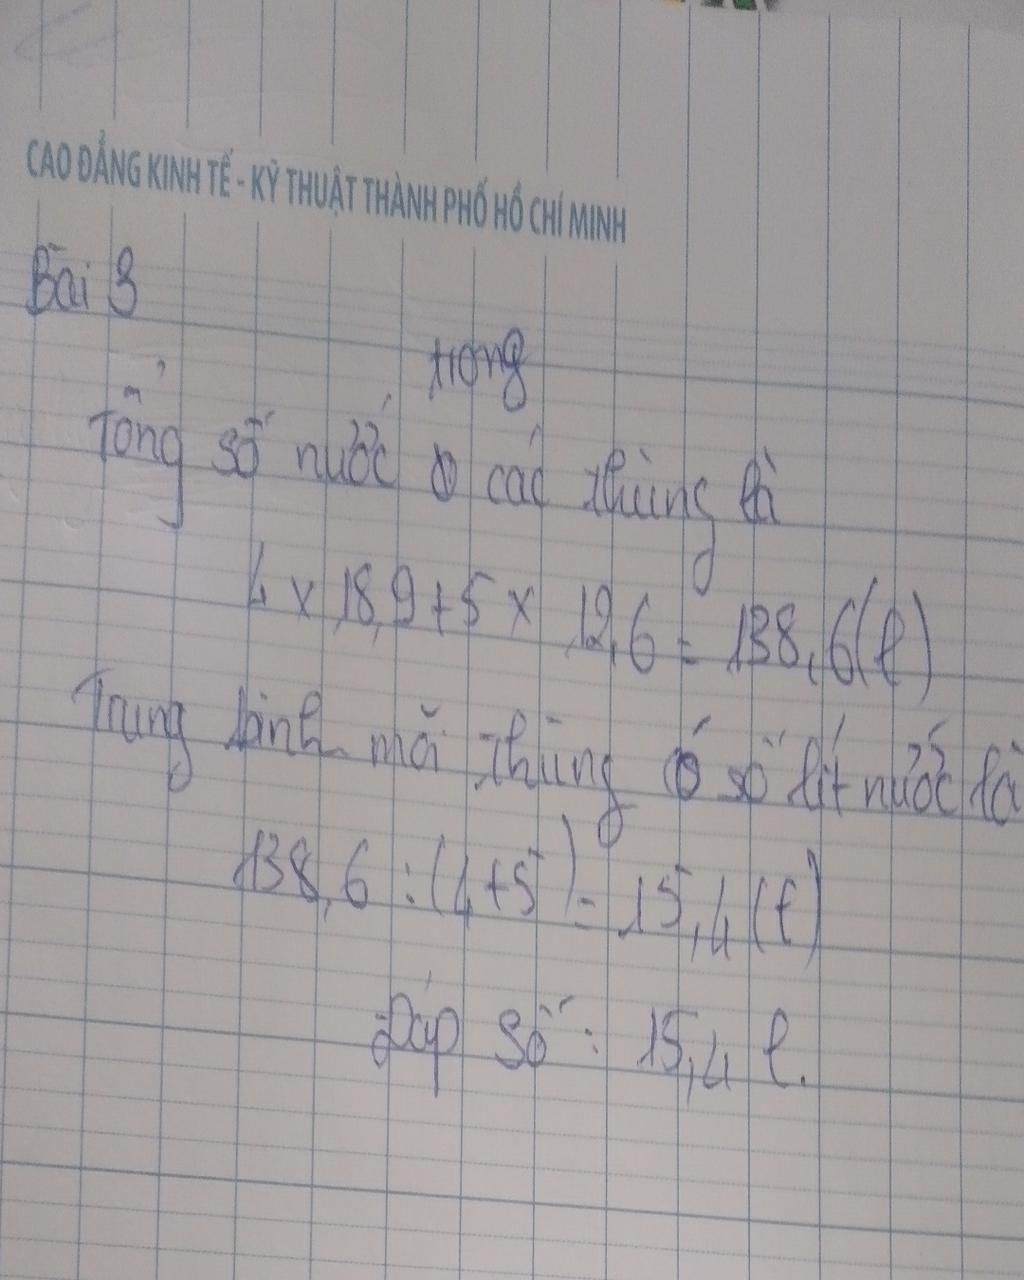 CAO ĐẲNG KINH TẾ - KỸ THUẬT THÀNH PHỐ HỒ CHÍ MINH
Bài 3
trong
Tổng số nước ở các thùng là
4 x 18,9 + 5 x 12,6 = 138,6 (l)
Trung bình mỗi thùng có số lít nước là
138,6 : (4+5) = 15,4 (l)
Đáp số : 15,4 l.